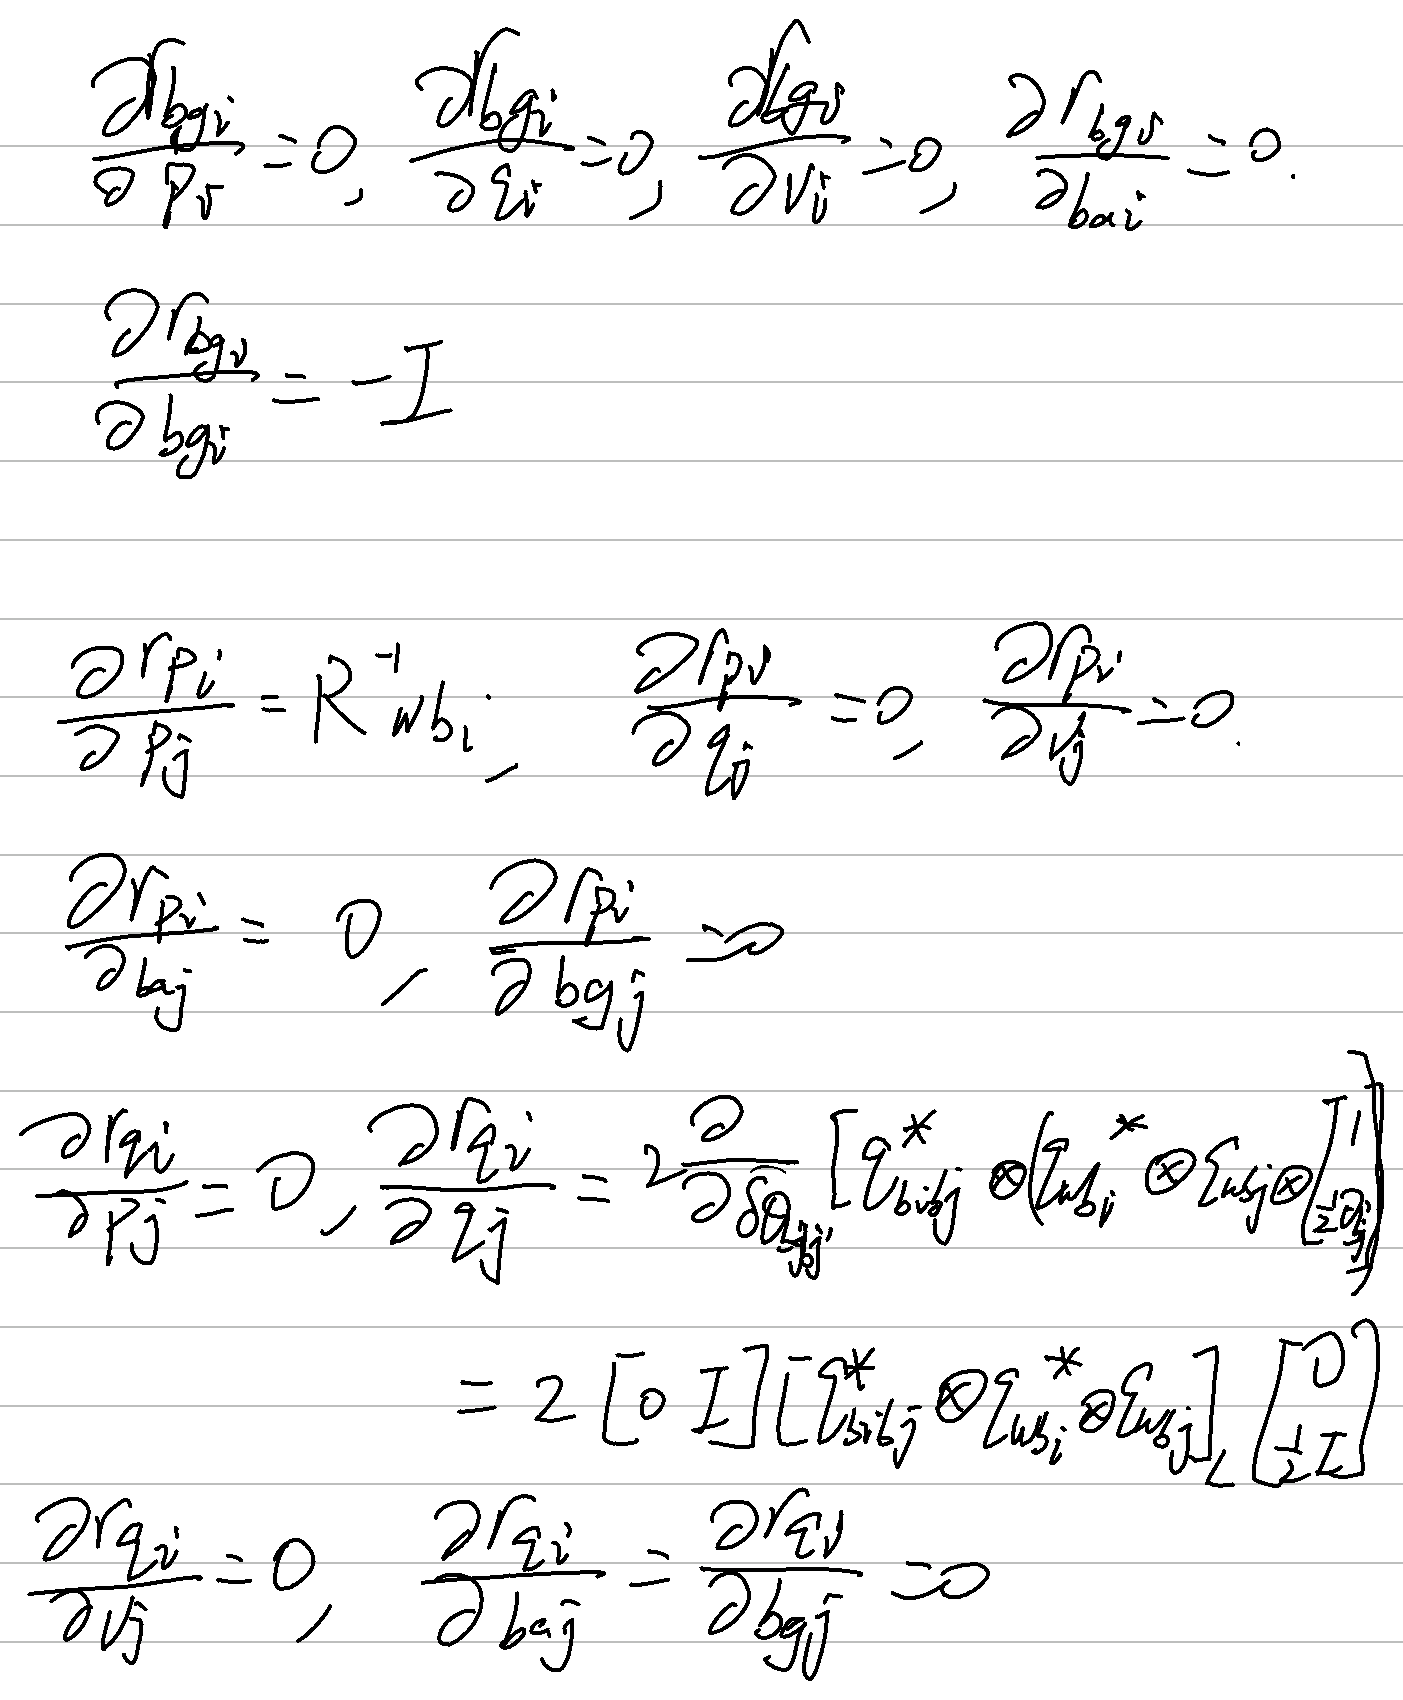 ∂r_bgi/∂p_i = 0, ∂r_bgi/∂q_i = 0, ∂r_bgi/∂v_i = 0, ∂r_bgi/∂b_ai = 0.
∂r_bgi/∂b_gi = -I
∂r_pi/∂p_j = R⁻¹_wb_i, ∂r_pi/∂q_j = 0, ∂r_pi/∂v_j = 0.
∂r_pi/∂b_aj = 0, ∂r_pi/∂b_gj = 0
∂r_qi/∂p_j = 0, ∂r_qi/∂q_j = 2 ∂/∂δθ_bjbj' [q*_bibj ⊗ (q_wb_i* ⊗ q_wbj ⊗ [1 ½θ_j])]
= 2 [0 I] [q*_bibj ⊗ q_wb_i* ⊗ q_wbj]_L [0 ½I]
∂r_qi/∂v_j = 0, ∂r_qi/∂b_aj = ∂r_qi/∂b_gj = 0